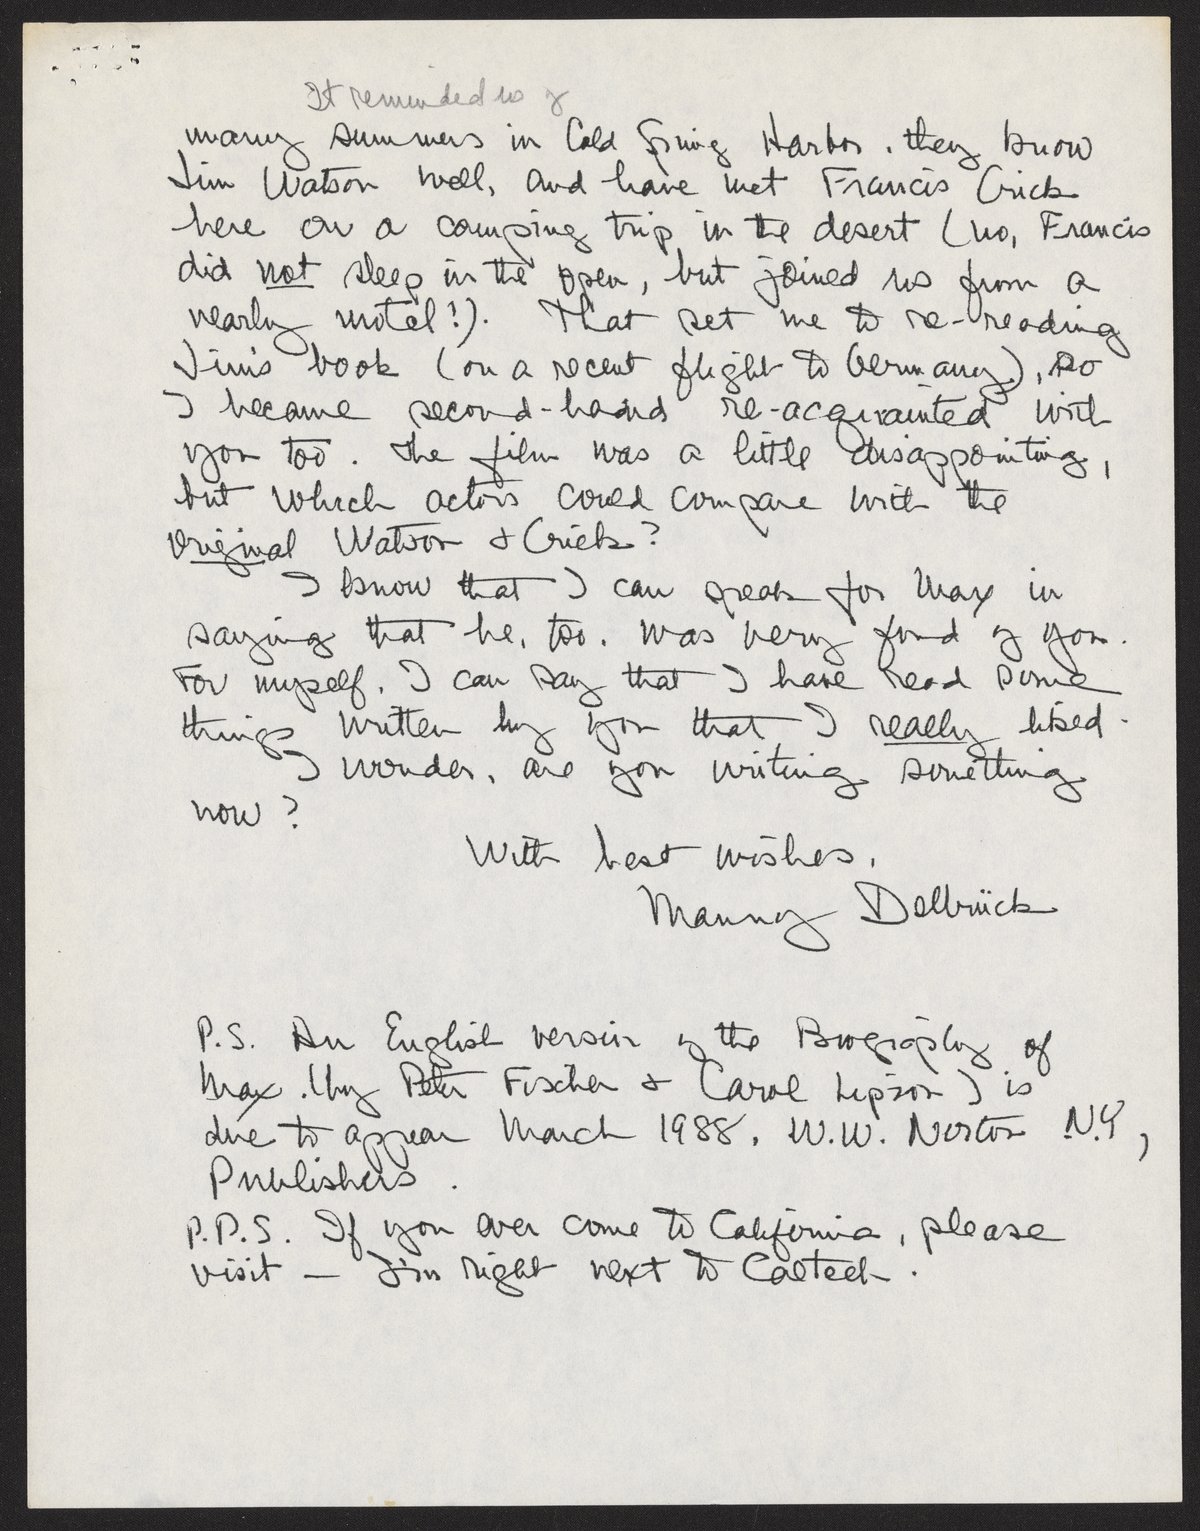 It reminded us of
many summers in Cold Spring Harbor. they know
Jim Watson well, and have met Francis Crick
here on a camping trip in the desert (no, Francis
did not sleep in the open, but joined us from a
nearby motel!). That set me to re-reading
Jim's book (on a recent flight to Germany), so
I became second-hand re-acquainted with
you too. The film was a little disappointing,
but which actors could compare with the
original Watson & Crick?
I know that I can speak for Max in
saying that he, too, was very fond of you.
For myself, I can say that I have read some
things written by you that I really liked.
I wonder, are you writing something
now?
With best wishes,
Manny Delbrück
P.S. An English version of the Biography of
Max (by Peter Fischer & Carol Lipson) is
due to appear March 1988, W.W. Norton N.Y,
Publishers.
P.P.S. If you ever come to California, please
visit — I'm right next to Caltech.